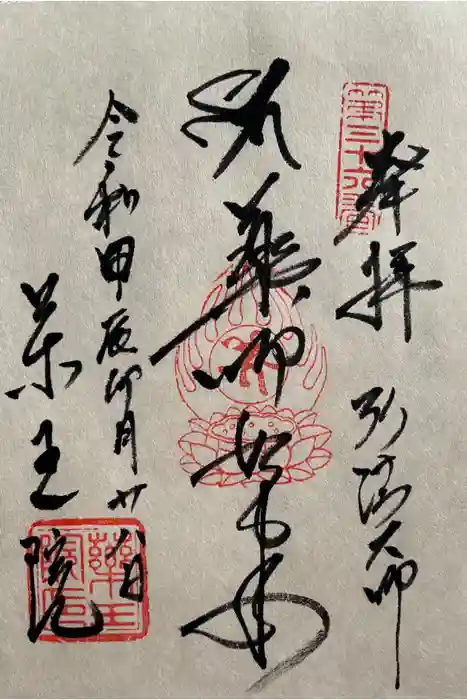 第三十六番
奉拝
弘法大師
薬師如来
令和甲辰卯月廿八日
薬王院
薬王
院印